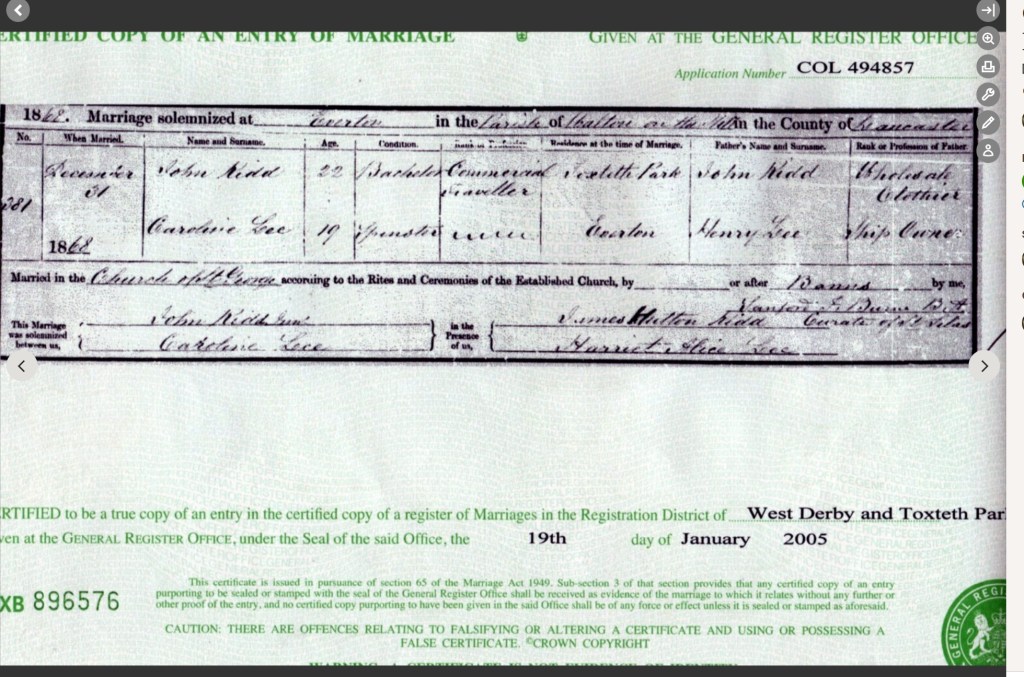 ERTIFIED COPY OF AN ENTRY OF MARRIAGE
GIVEN AT THE GENERAL REGISTER OFFICE
Application Number COL 494857
1868. Marriage solemnized at Everton in the Parish of Walton on the Hill in the County of Lancaster
No. When Married. Name and Surname. Age. Condition. Rank or Profession. Residence at the time of Marriage. Father's Name and Surname. Rank or Profession of Father.
December John Kidd 22 Bachelor Commercial Toxteth Park John Kidd Wholesale
31 Traveller Clothier
381
Caroline Lee 19 Spinster Everton Henry Lee Ship Owner
1868
Married in the Church of St George according to the Rites and Ceremonies of the Established Church, by or after Banns by me,
Burn B.A.
This Marriage was solemnized between us, John Kidd Junr in the Presence of us, James Hutton Kidd Curate of St Silas
Caroline Lee Harriet Alice Lee
RTIFIED to be a true copy of an entry in the certified copy of a register of Marriages in the Registration District of West Derby and Toxteth Par
ven at the GENERAL REGISTER OFFICE, under the Seal of the said Office, the 19th day of January 2005
This certificate is issued in pursuance of section 65 of the Marriage Act 1949. Sub-section 3 of that section provides that any certified copy of an entry
purporting to be sealed or stamped with the seal of the General Register Office shall be received as evidence of the marriage to which it relates without any further or
other proof of the entry, and no certified copy purporting to have been given in the said Office shall be of any force or effect unless it is sealed or stamped as aforesaid.
XB 896576
CAUTION: THERE ARE OFFENCES RELATING TO FALSIFYING OR ALTERING A CERTIFICATE AND USING OR POSSESSING A
FALSE CERTIFICATE. ©CROWN COPYRIGHT
WARNING: A CERTIFICATE IS NOT EVIDENCE OF IDENTITY
GENERAL REGI